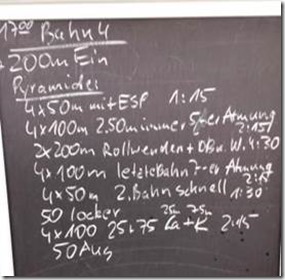 17⁰⁰ Bahn 4
200m Ein
Pyramide:
4x50m mit ESP 1:15
4x100m 2.50m immer 5er Atmung 2:15
2x200m Rollwenden + DBn. W. 4:30
4x100m letzte Bahn 7-er Atmung 2:15
4x50m 2. Bahn schnell 1:30
50 locker
4x100 25+75 25m La+ 75m K 2:15
50 Aus